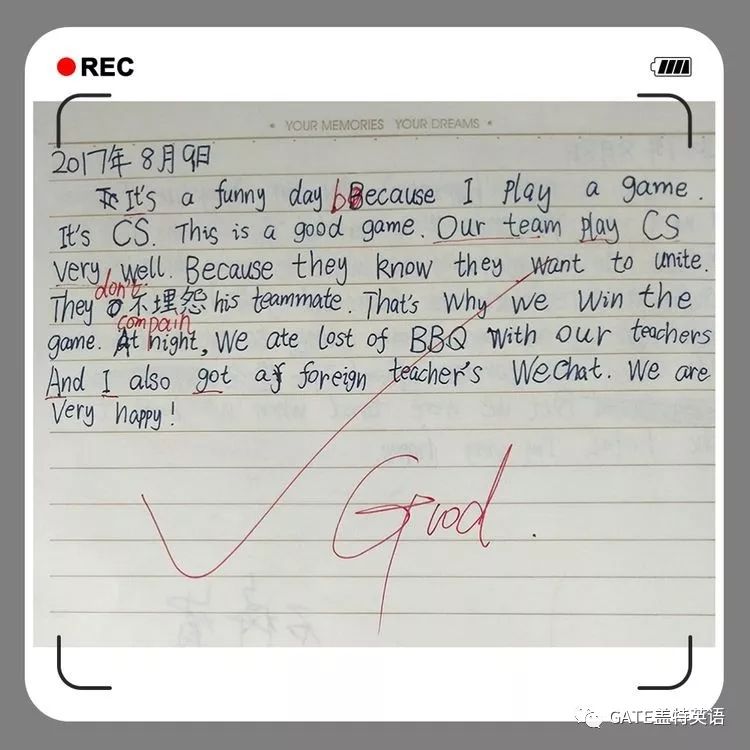 REC
• YOUR MEMORIES YOUR DREAMS •
2017年8月9日
It's a funny day because I play a game.
It's CS. This is a good game. Our team play CS
very well. Because they know they want to unite.
don't
They 不埋怨 his teammate. That's why we win the
compain
game. At night, we ate lost of BBQ with our teachers
And I also got a foreign teacher's WeChat. We are
very happy!
Good.
GATE盖特英语